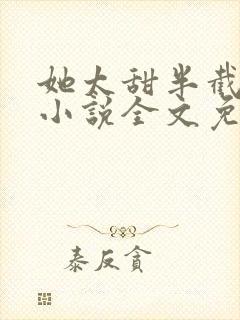 她太甜半截
小说全文免
泰反貪